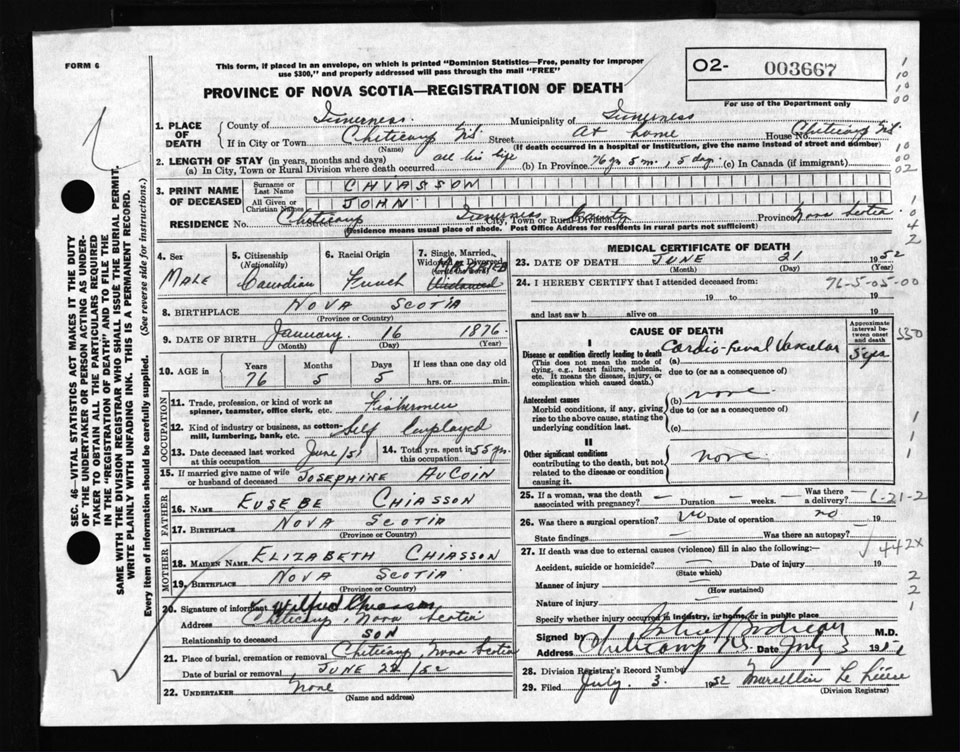 FORM 6
This form, if placed in an envelope, on which is printed "Dominion Statistics—Free, penalty for improper
use $300," and properly addressed will pass through the mail "FREE"
PROVINCE OF NOVA SCOTIA—REGISTRATION OF DEATH
O2- 003667
For use of the Department only
1. PLACE OF DEATH
County of Inverness Municipality of Inverness
If in City or Town Cheticamp N.S. Street At home House No. Cheticamp N.S.
(Name) (If death occurred in a hospital or institution, give the name instead of street and number)
2. LENGTH OF STAY (in years, months and days)
(a) In City, Town or Rural Division where death occurred all his life (b) In Province 76 yr 5 m, 5 days (c) In Canada (if immigrant)
3. PRINT NAME OF DECEASED
Surname or Last Name CHIASSON
All Given or Christian Names JOHN
RESIDENCE No. Street Cheticamp Inverness County City, Town or Rural Division Province Nova Scotia
(Residence means usual place of abode. Post Office Address for residents in rural parts not sufficient)
SEC. 46—VITAL STATISTICS ACT MAKES IT THE DUTY
OF THE UNDERTAKER OR PERSON ACTING AS UNDER-
TAKER TO OBTAIN ALL THE PARTICULARS REQUIRED
IN THE "REGISTRATION OF DEATH" AND TO FILE THE
SAME WITH THE DIVISION REGISTRAR WHO SHALL ISSUE THE BURIAL PERMIT.
WRITE PLAINLY WITH UNFADING INK. THIS IS A PERMANENT RECORD.
Every item of information should be carefully supplied. (See reverse side for instructions.)
4. Sex
MALE
5. Citizenship (Nationality)
Canadian
6. Racial Origin
French
7. Single, Married, Widowed or Divorced
(write the word)
MARRIED
Widowed
8. BIRTHPLACE NOVA SCOTIA
(Province or Country)
9. DATE OF BIRTH January 16 1876
(Month) (Day) (Year)
10. AGE in Years 76 Months 5 Days 5 If less than one day old
hrs. or min.
OCCUPATION
11. Trade, profession, or kind of work as
spinner, teamster, office clerk, etc. Fishermen
12. Kind of industry or business, as cotton-
mill, lumbering, bank, etc. Self Employed
13. Date deceased last worked
at this occupation June/51
14. Total yrs. spent in
this occupation 55 yr.
15. If married give name of wife
or husband of deceased JOSEPHINE AUCOIN
FATHER
16. NAME EUSEBE CHIASSON
17. BIRTHPLACE NOVA SCOTIA
(Province or Country)
MOTHER
18. MAIDEN NAME ELIZABETH CHIASSON
19. BIRTHPLACE NOVA SCOTIA
(Province or Country)
20. Signature of informant X Wilfred Chiasson
Address Cheticamp, Nova Scotia
Relationship to deceased SON
21. Place of burial, cremation or removal Cheticamp, Nova Scotia
Date of burial or removal JUNE 22/52
22. UNDERTAKER None
(Name and address)
MEDICAL CERTIFICATE OF DEATH
23. DATE OF DEATH JUNE 21 1952
(Month) (Day) (Year)
24. I HEREBY CERTIFY that I attended deceased from: 76-5-05-00
19 to 19
and last saw h alive on 19
CAUSE OF DEATH
Approximate interval between onset and death
I
Disease or condition directly leading to death
(This does not mean the mode of
dying, e.g., heart failure, asthenia,
etc. It means the disease, injury, or
complication which caused death.)
(a) Cardio-Renal Vascular 5 yrs
due to (or as a consequence of)
Antecedent causes
Morbid conditions, if any, giving
rise to the above cause, stating the
underlying condition last.
(b) none
due to (or as a consequence of)
(c)
II
Other significant conditions
contributing to the death, but not
related to the disease or condition
causing it.
none
25. If a woman, was the death
associated with pregnancy? — Duration — weeks. Was there a delivery? — 6-21-2
26. Was there a surgical operation? no Date of operation no 19
State findings Was there an autopsy?
27. If death was due to external causes (violence) fill in also the following:—
442X
Accident, suicide or homicide? Date of injury 19
(State which)
Manner of injury
(How sustained)
Nature of injury
Specify whether injury occurred in industry, in home, or in public place
Signed by M.D.
Address Cheticamp N.S. Date July 3 19
28. Division Registrar's Record Number
29. Filed July 3 1952
(Division Registrar)